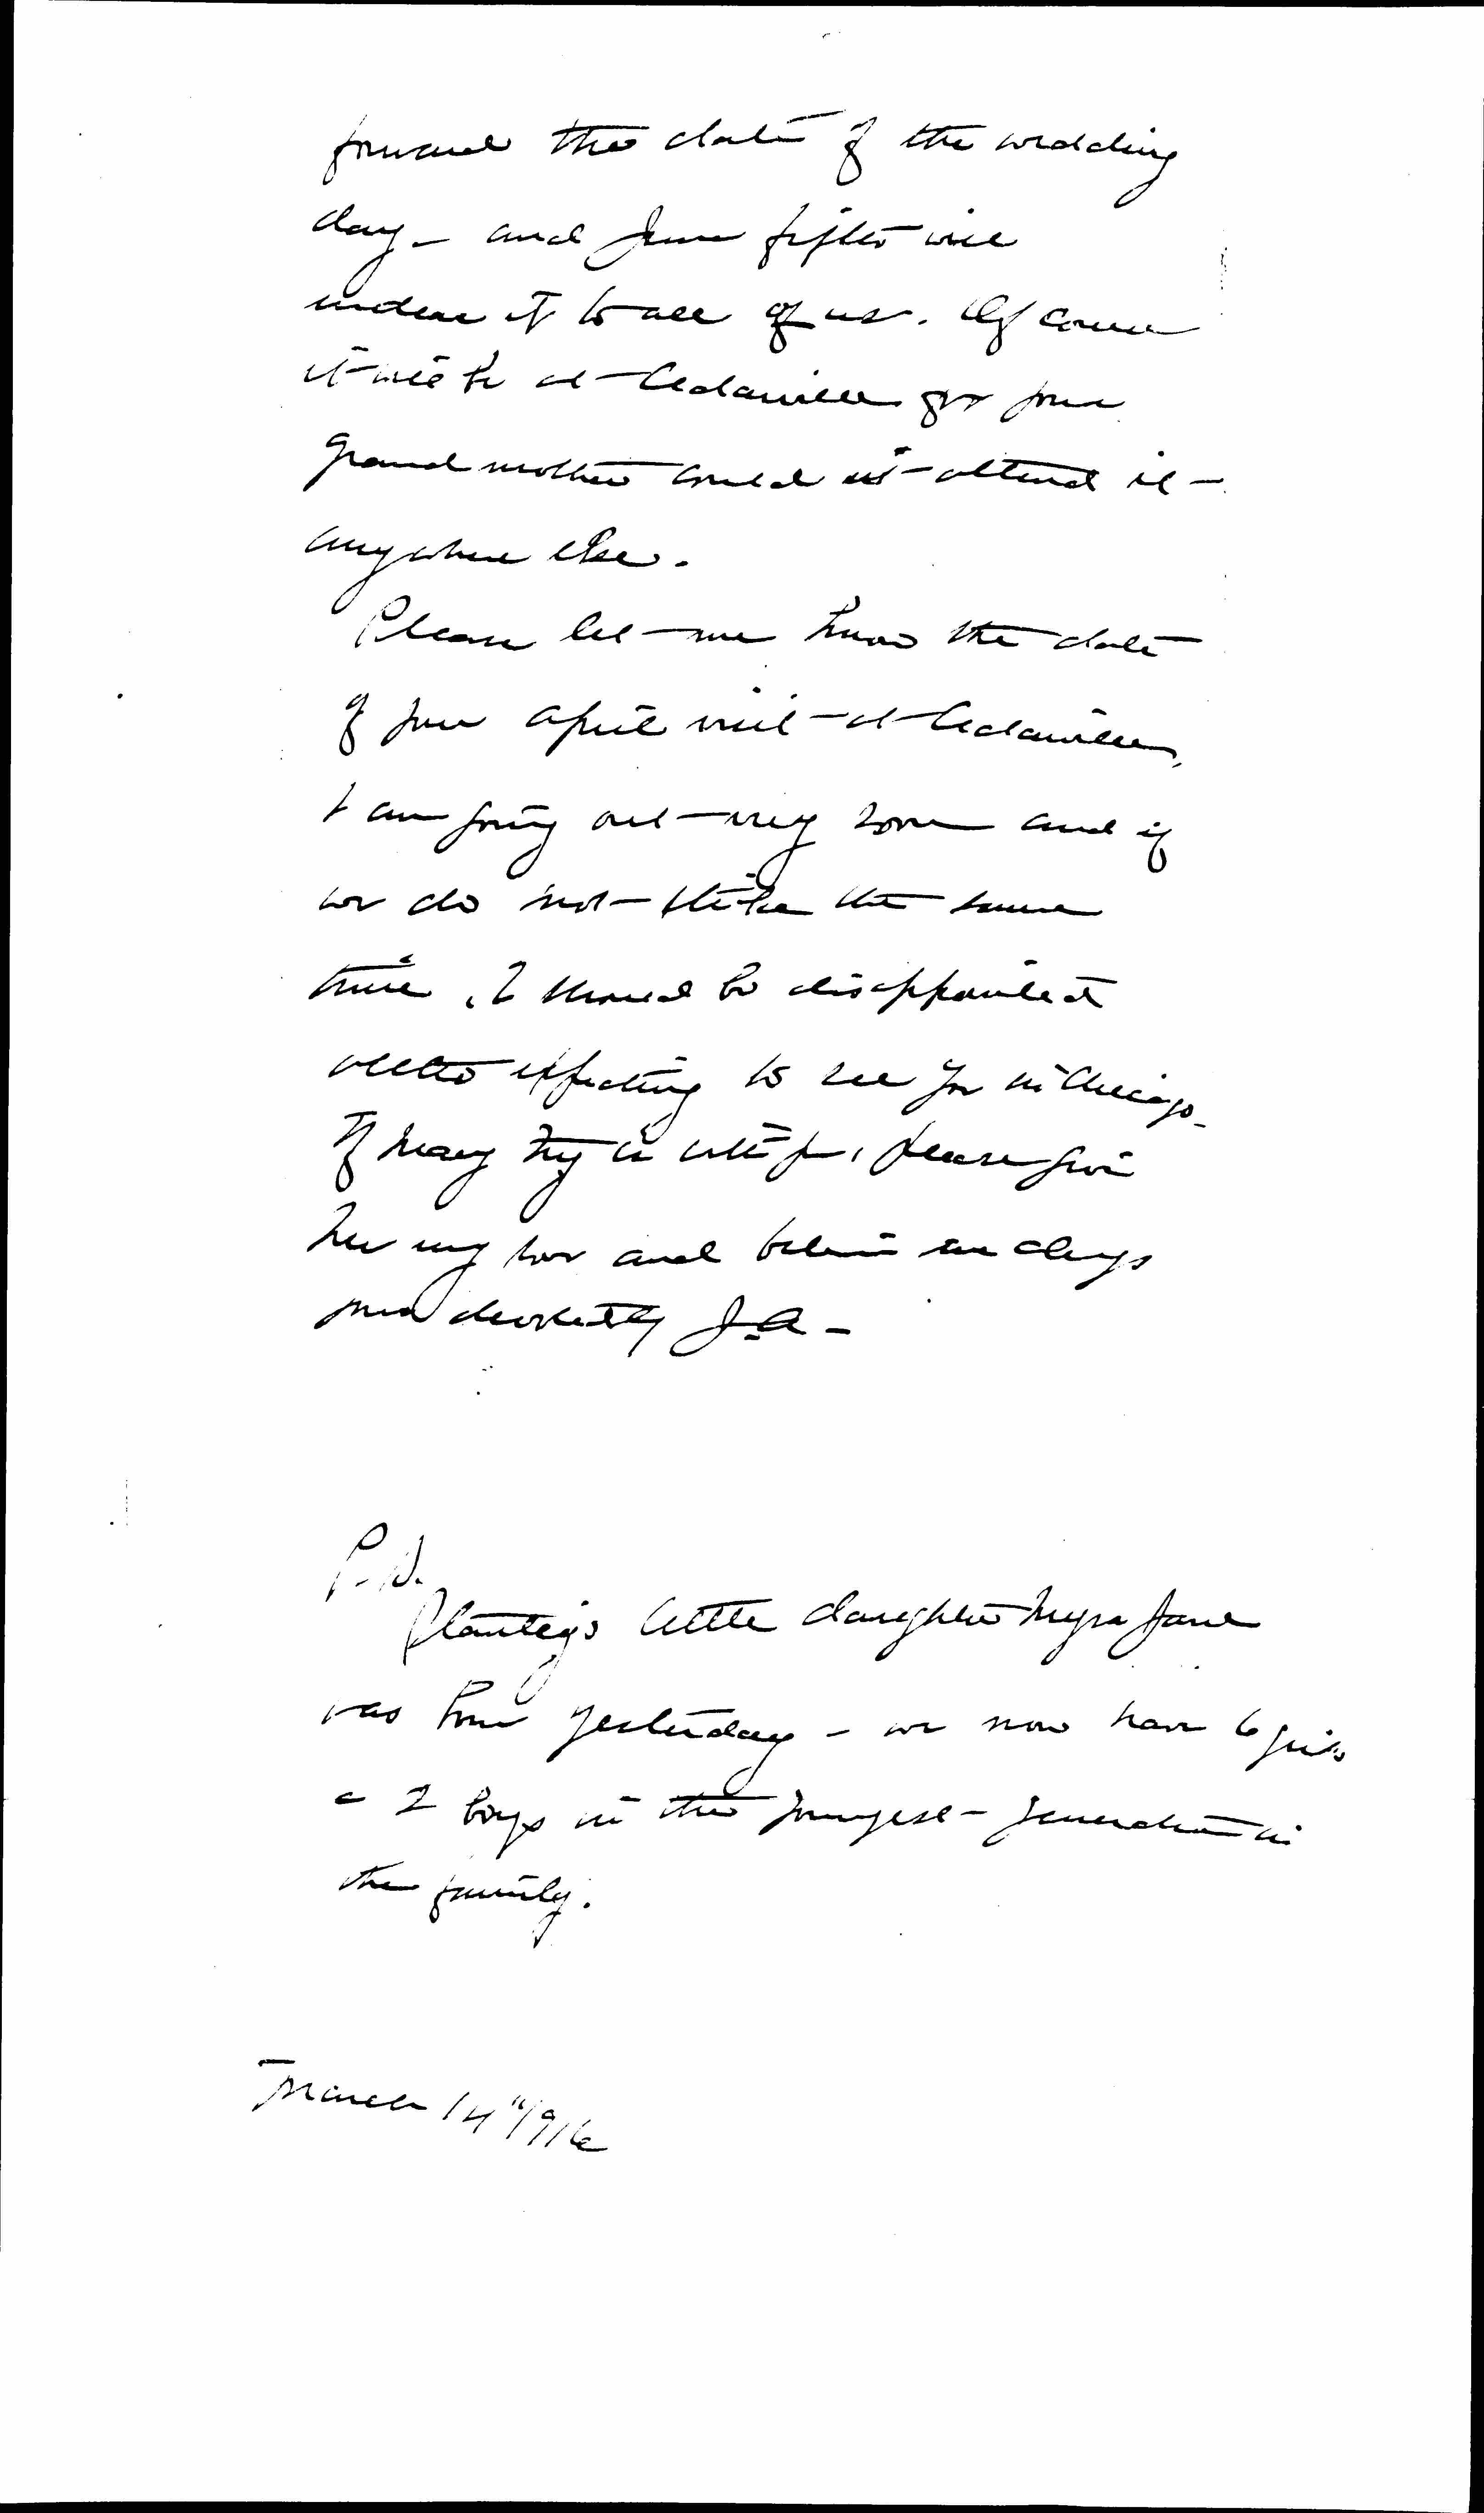 forward the date of the wedding
day – and June fifth will
endear it to all of us. Of course
it will be at Cedarville for your
grandmother could not attend it
anywhere else.
Please let me know the date
of your April visit at Cedarville,
I am going out very soon and if
we do not strike the same
time, I should be disappointed
altho expecting to see you in Chicago –
If Mary Fry is with you, please give
her my love and believe me always
yours devotedly J.A –
P.S.
Stanley's little daughter Myra Jane
was born yesterday – we now have 6 girls
& 2 boys in the youngest generation in
the family.
March 14" 1916